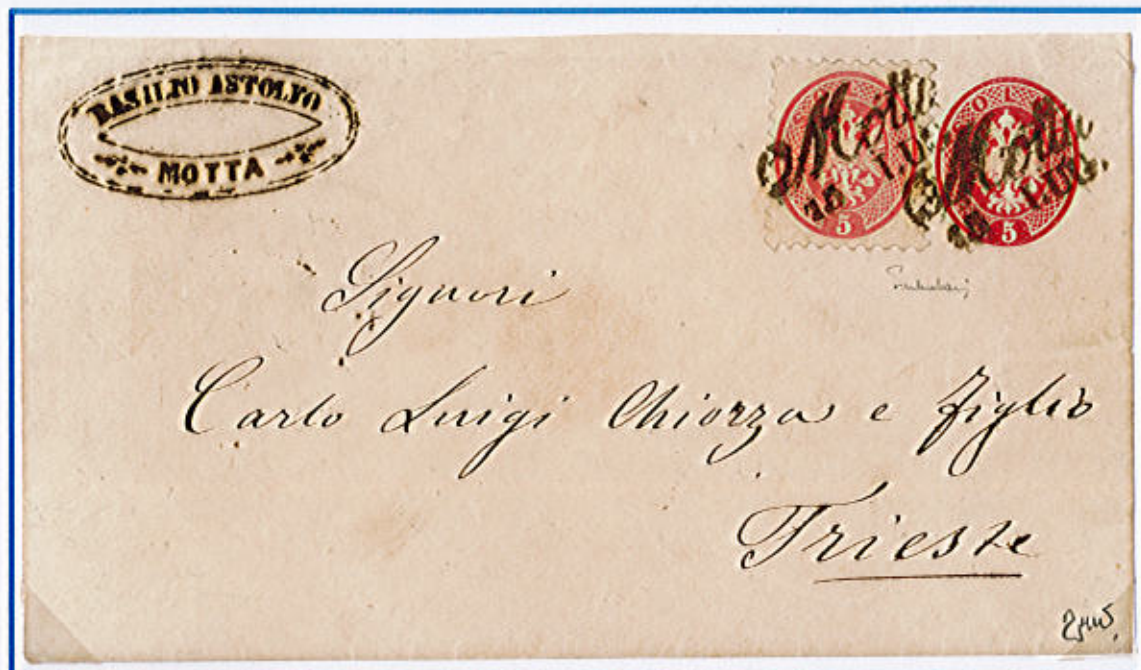 BASILIO ASTOLFO
MOTTA
Motta
28 LUG.
5
SOL
Motta
LUG.
5
Signori
Carlo Luigi Chiozza e figlio
Trieste